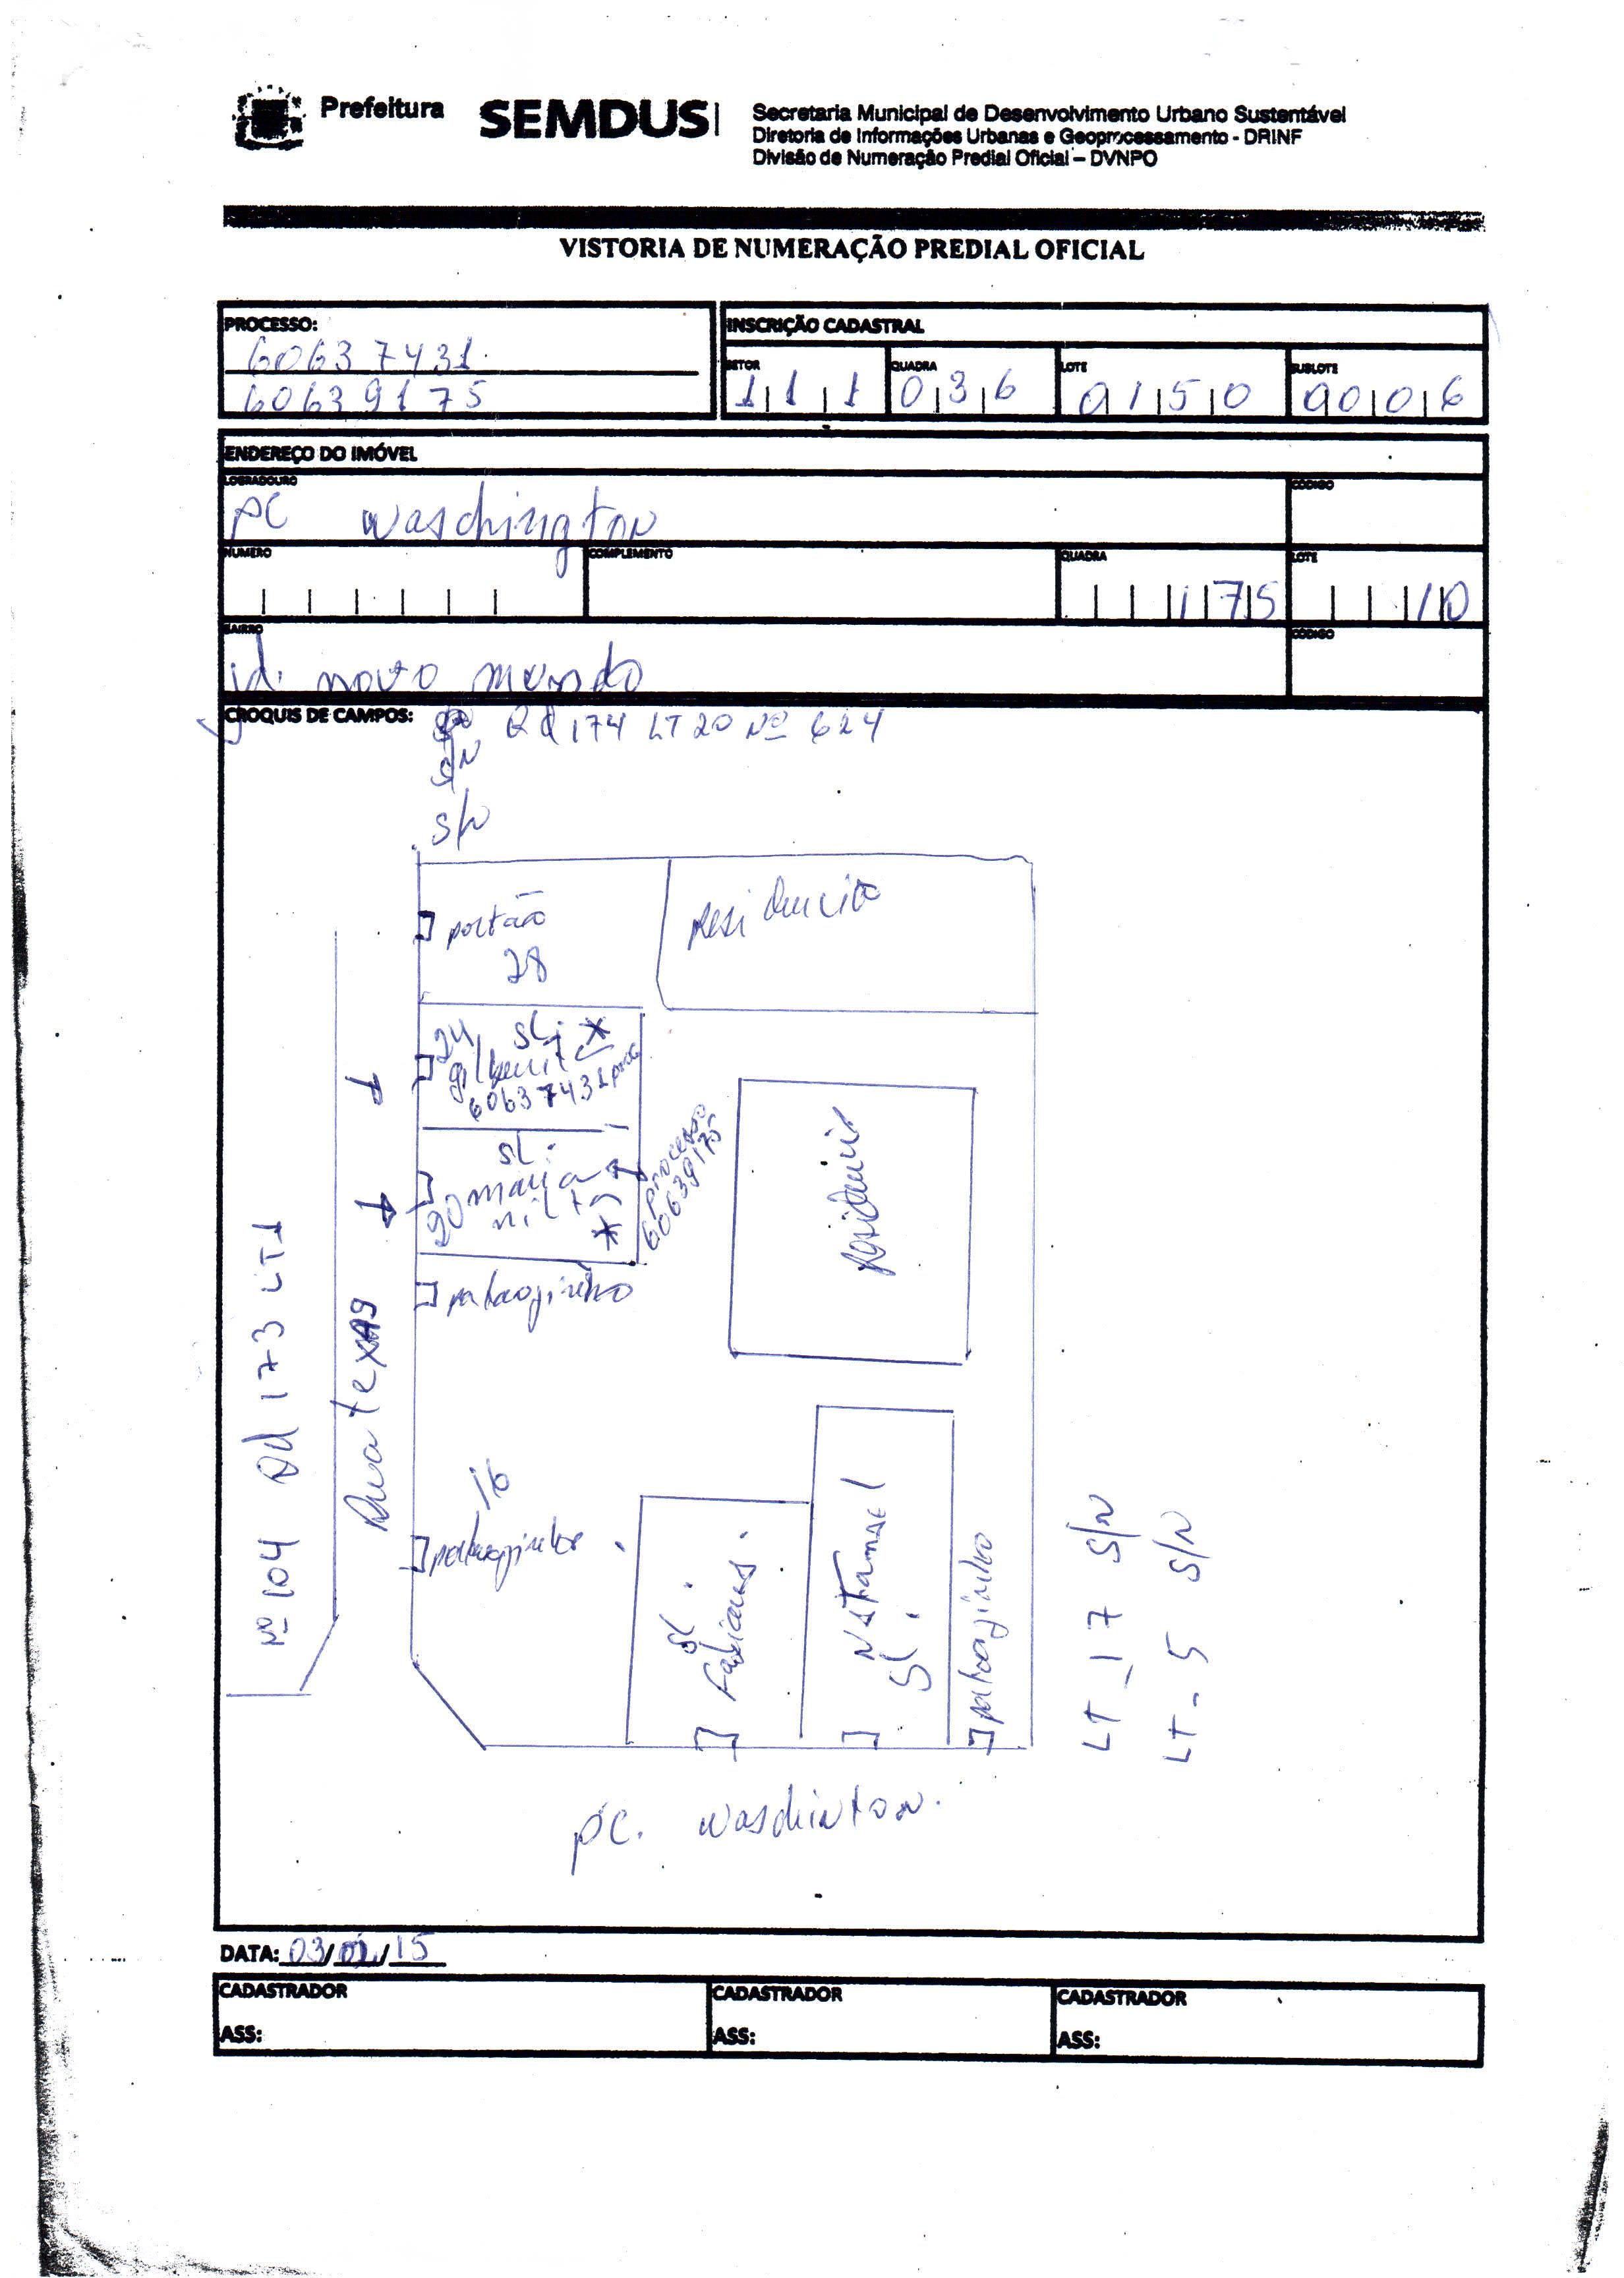 Prefeitura SEMDUS
Secretaria Municipal de Desenvolvimento Urbano Sustentável
Diretoria de Informações Urbanas e Geoprocessamento - DRINF
Divisão de Numeração Predial Oficial – DVNPO
VISTORIA DE NUMERAÇÃO PREDIAL OFICIAL
PROCESSO:
60637431
60639175
INSCRIÇÃO CADASTRAL
SETOR QUADRA LOTE SUBLOTE
111 036 0150 0006
ENDEREÇO DO IMÓVEL
LOGRADOURO CÓDIGO
PC Waschington
NUMERO COMPLEMENTO QUADRA LOTE
175 10
BAIRRO CÓDIGO
jd. novo mundo
CROQUIS DE CAMPOS:
Qd 174 LT 20 Nº 624
S/N
S/N
portão
28
Residencia
24 SL: *
60637431 proc
SL:
20 maria
nilta
*
processo
60639175
residencia
Nº 104 Qd 173 LT1
Rua texas
16
SL.
Fabiana.
Natanael
SL.
LT_17 S/N
LT-5 S/N
PC. Waschinton.
DATA: 03/ /15
CADASTRADOR CADASTRADOR CADASTRADOR
ASS: ASS: ASS: